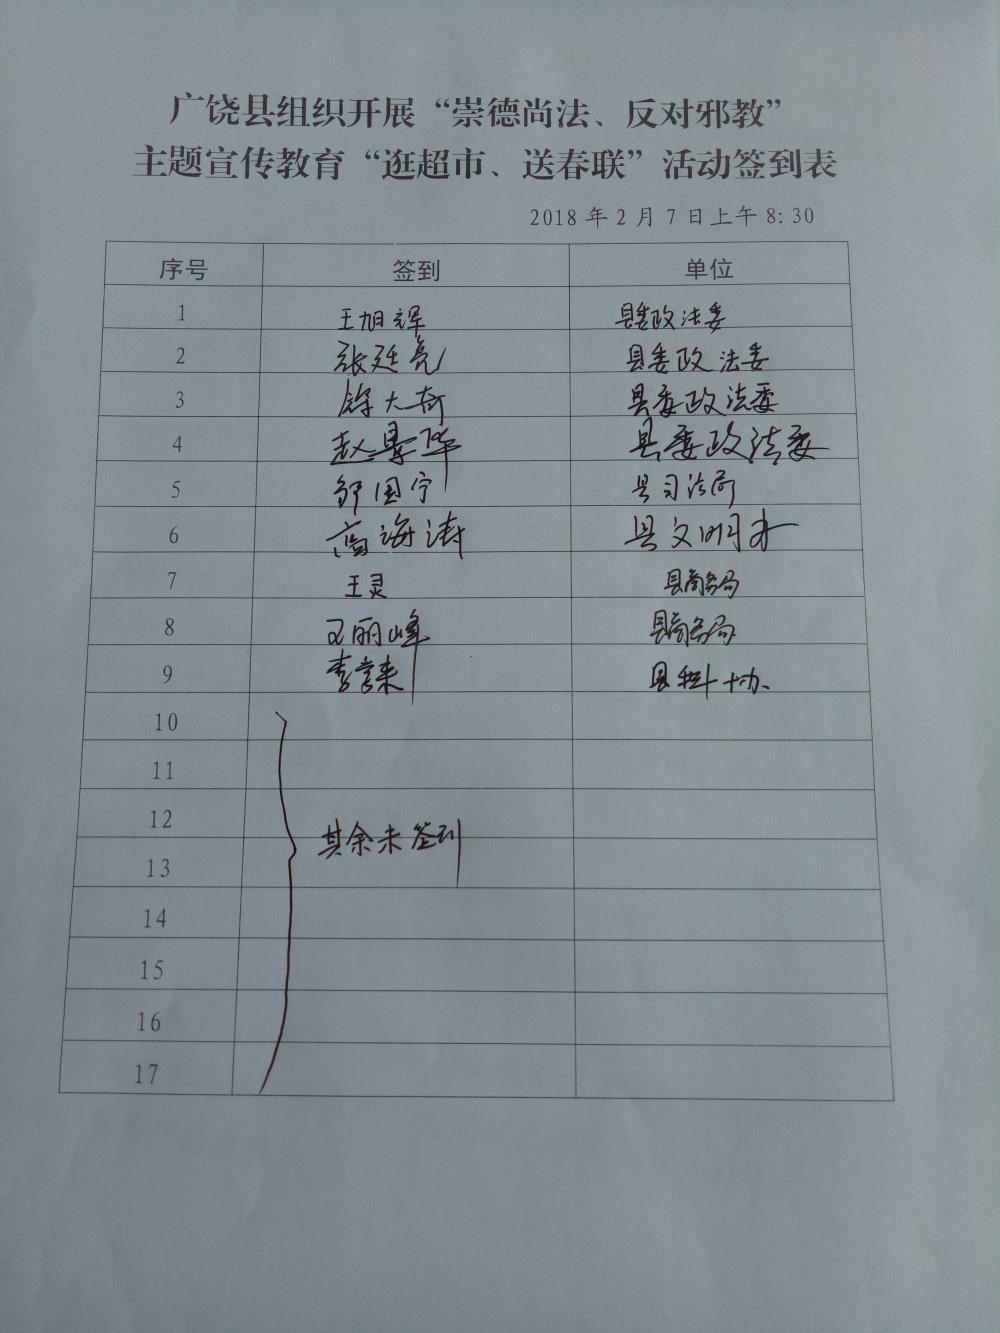 广饶县组织开展“崇德尚法、反对邪教”
主题宣传教育“逛超市、送春联”活动签到表
2018 年 2 月 7 日上午 8:30
序号 签到 单位
1 王旭辉 县委政法委
2 张廷亮 县委政法委
3 徐大奇 县委政法委
4 赵景华 县委政法委
5 国宁 县司法局
6 高海涛 县文明办
7 王灵 县商务局
8 王丽峰 县商务局
9 李来 县科协
10
11
12
其余未签到
13
14
15
16
17